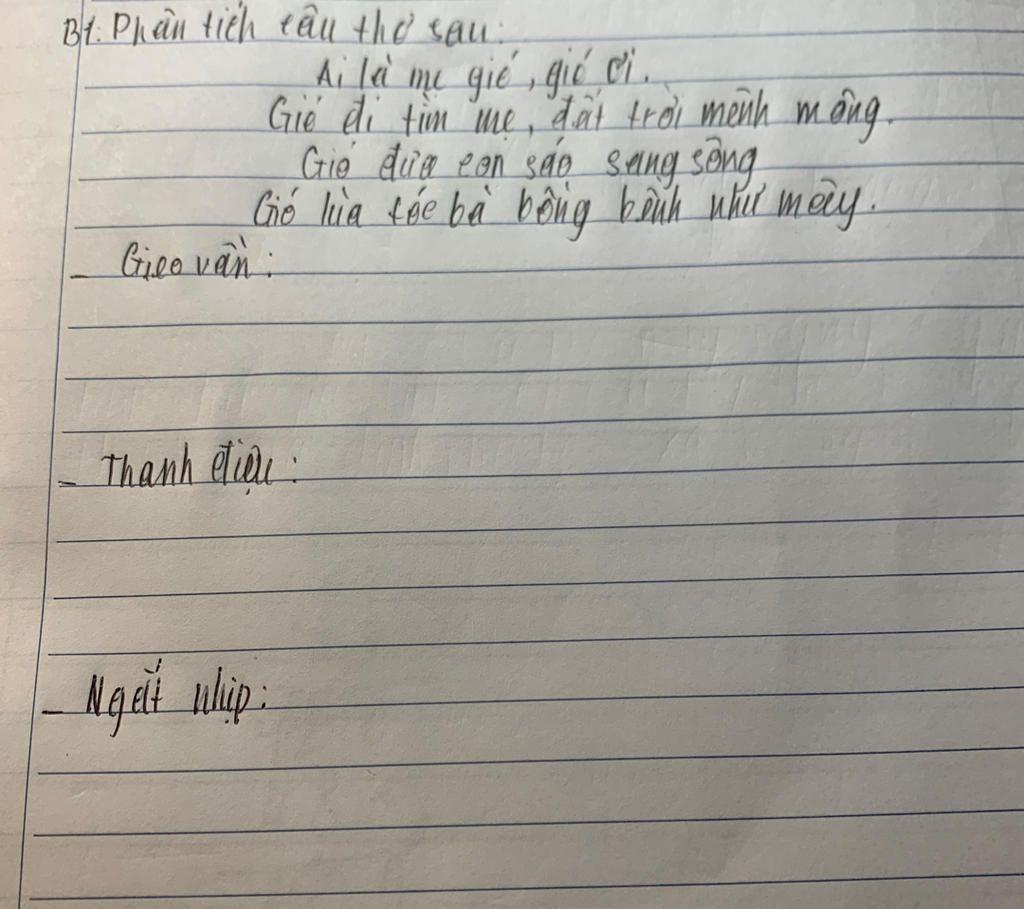 B1: Phân tích câu thơ sau:
Ai là mẹ gió, gió ơi.
Gió đi tìm mẹ, đất trời mênh mông.
Gió đưa con sáo sang sông
Gió lùa tóc bà bồng bềnh như mây.
- Gieo vần:
- Thanh điệu:
- Ngắt nhịp: